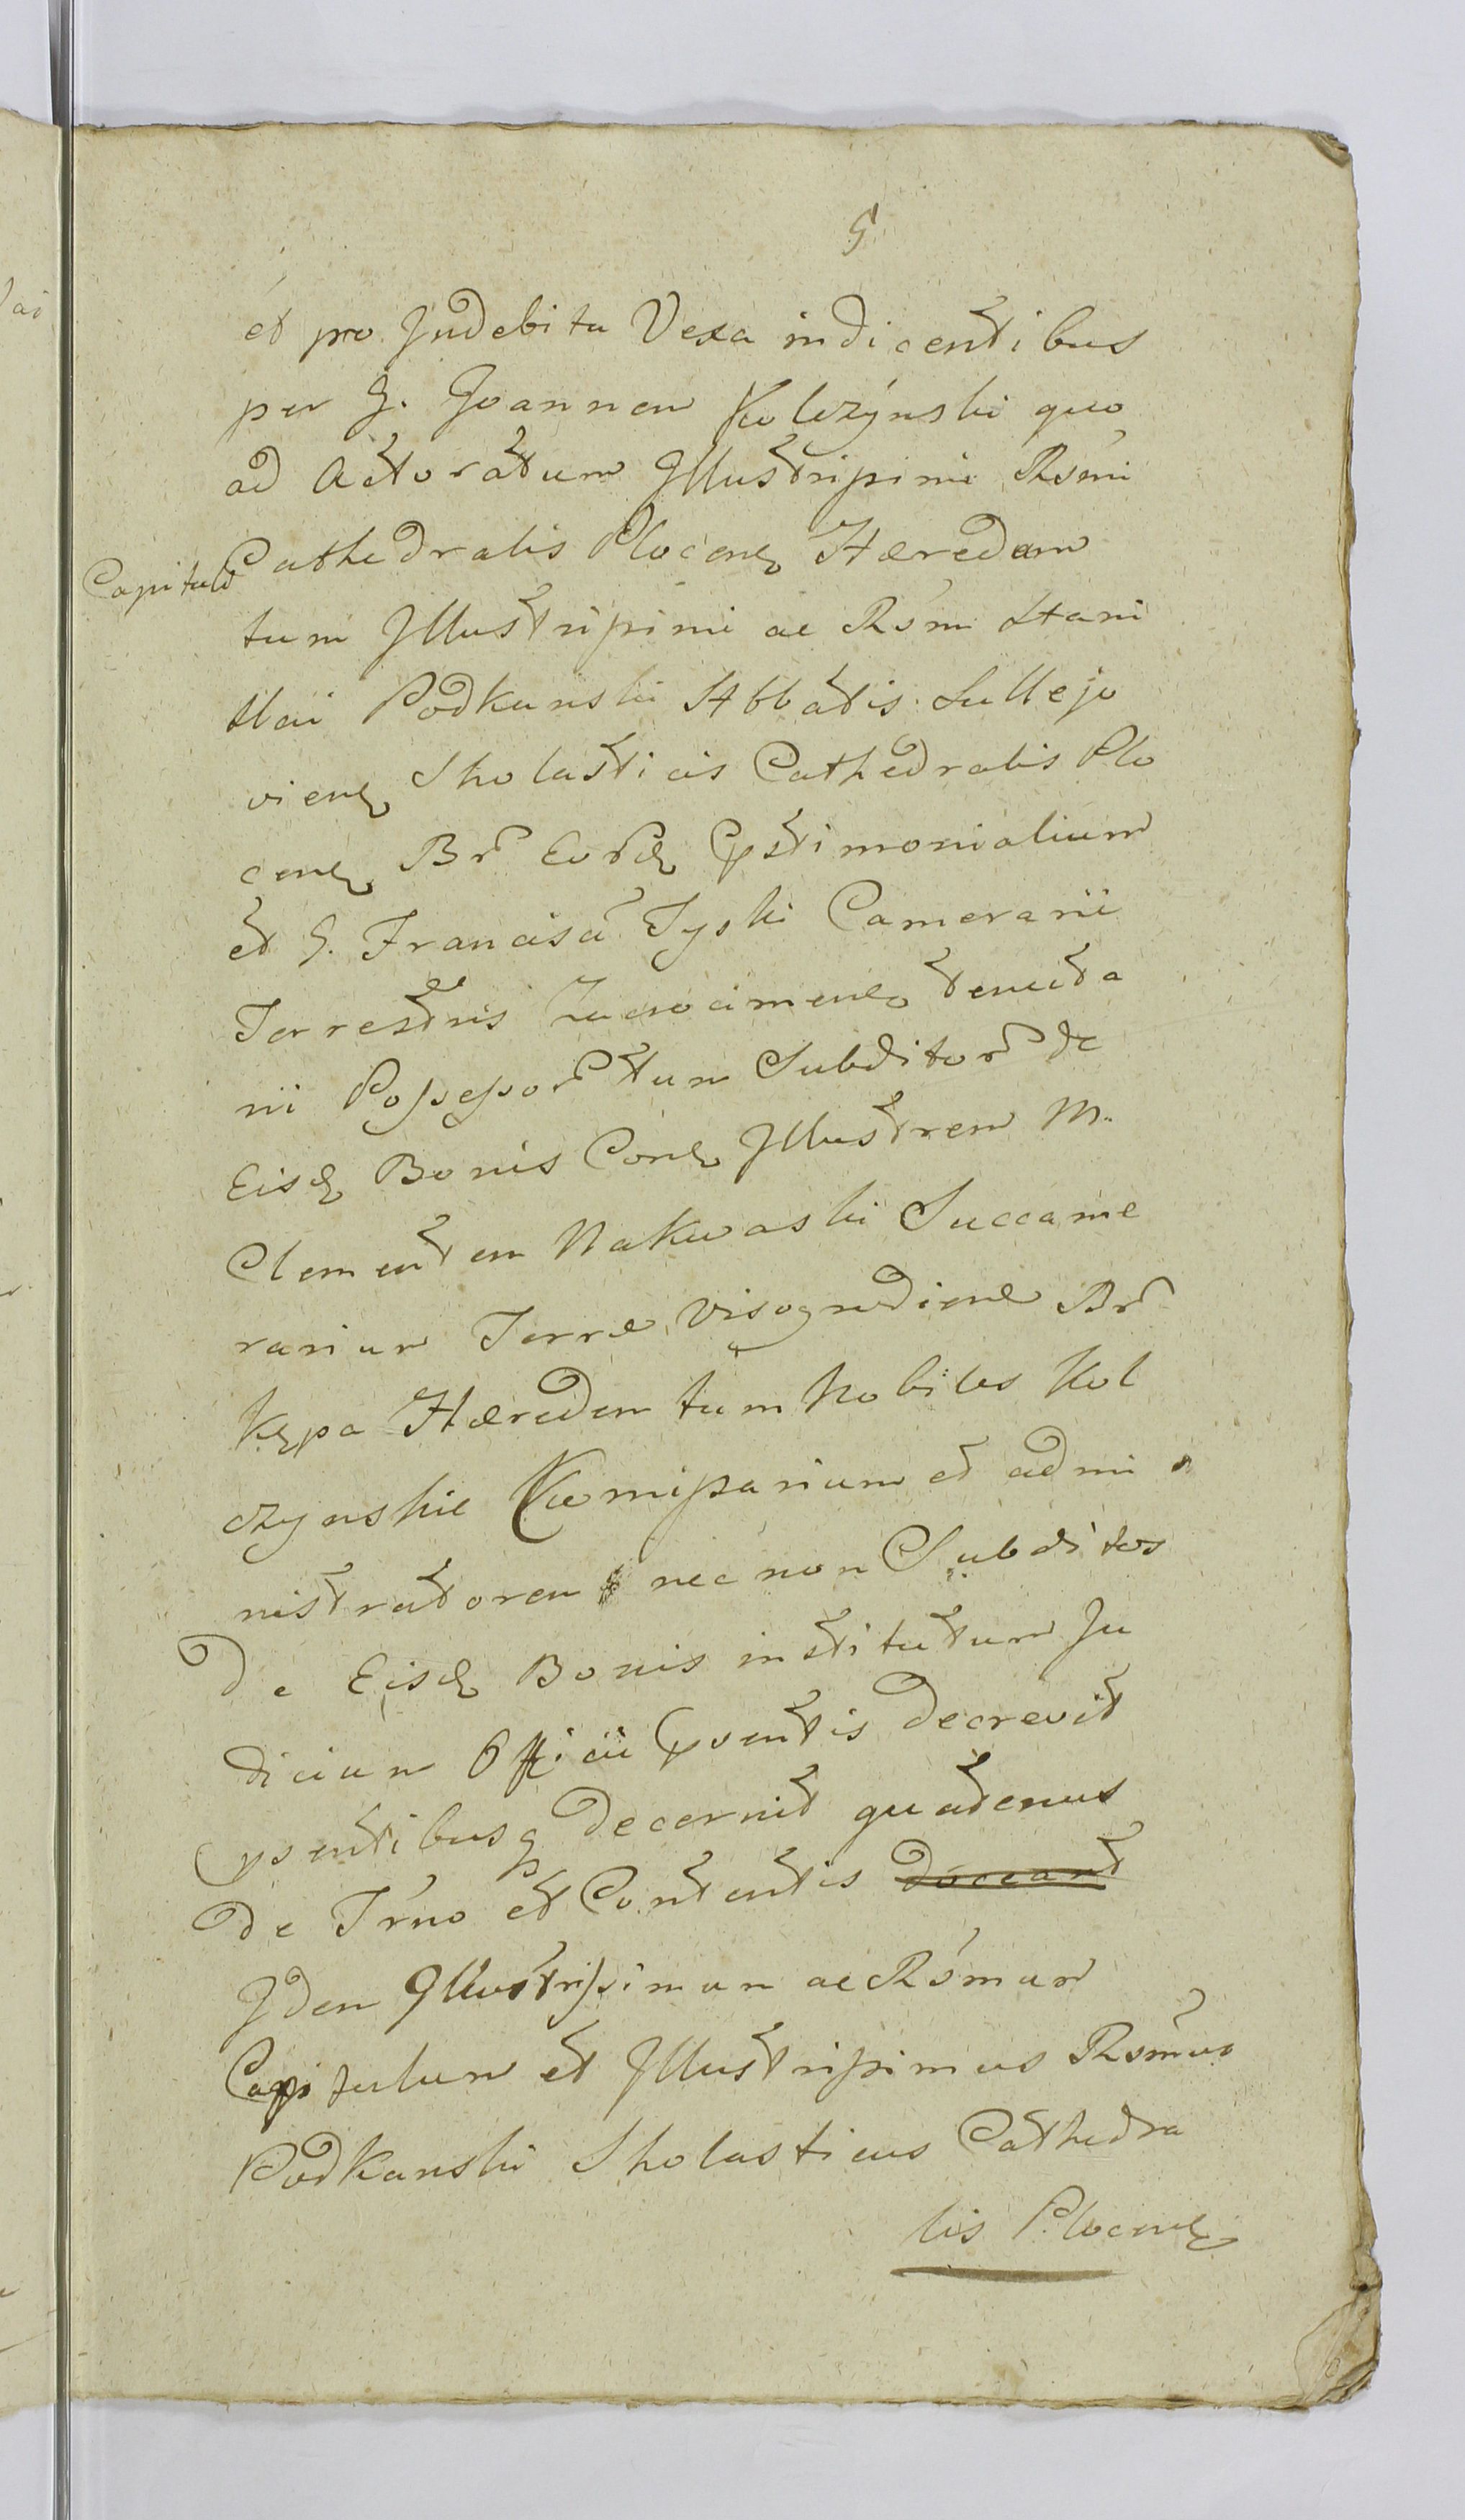 5
et pro Indebita Vexa indicentibus
per G. Joannem Kolczÿnski quo
ad Actoratum Illustrissimi Rsmi
Capituli Cathedralis Plocens Hæredum
tum Illustrissimi ac Rsmi Stani
slai Podkanski Abbatis Sullejo
viens Sholasticis Cathedralis Plo
cens Br Eord Pstimonialium
et G. Francisci Tyski Camerarii
Terrestris Zacrocimens tenuta
rii Possessor tum Subditor de
Eisd Bonis Cons Illustrem M.
Clementem Nakwaski Succame
rarium Terræ Visogrodiens Br
Kępa Hæredem tum Nobiles Kol
czynskie Komissarium et admi
nistratorem nec non Subditos
de Eisd Bonis institutum Ju
dicium Officii Psentis decrevit
Psentibusq decernit quatenus
de Trno et Contentis doceant
Idem Illustrissimum ac Rsmum
Capitulum et Illustrissimus Rsmus
Podkanski Sholasticus Cathedra
lis Plocens